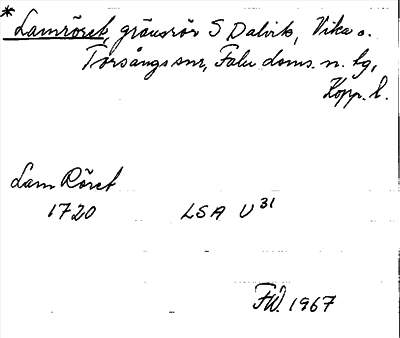 * Lamröset, gränsrör S Dalvik, Vika o.
Torsångs snr, Falu doms. n. tg,
Kopp. l.
Lam Röset
1720 LSA U31
FW. 1967